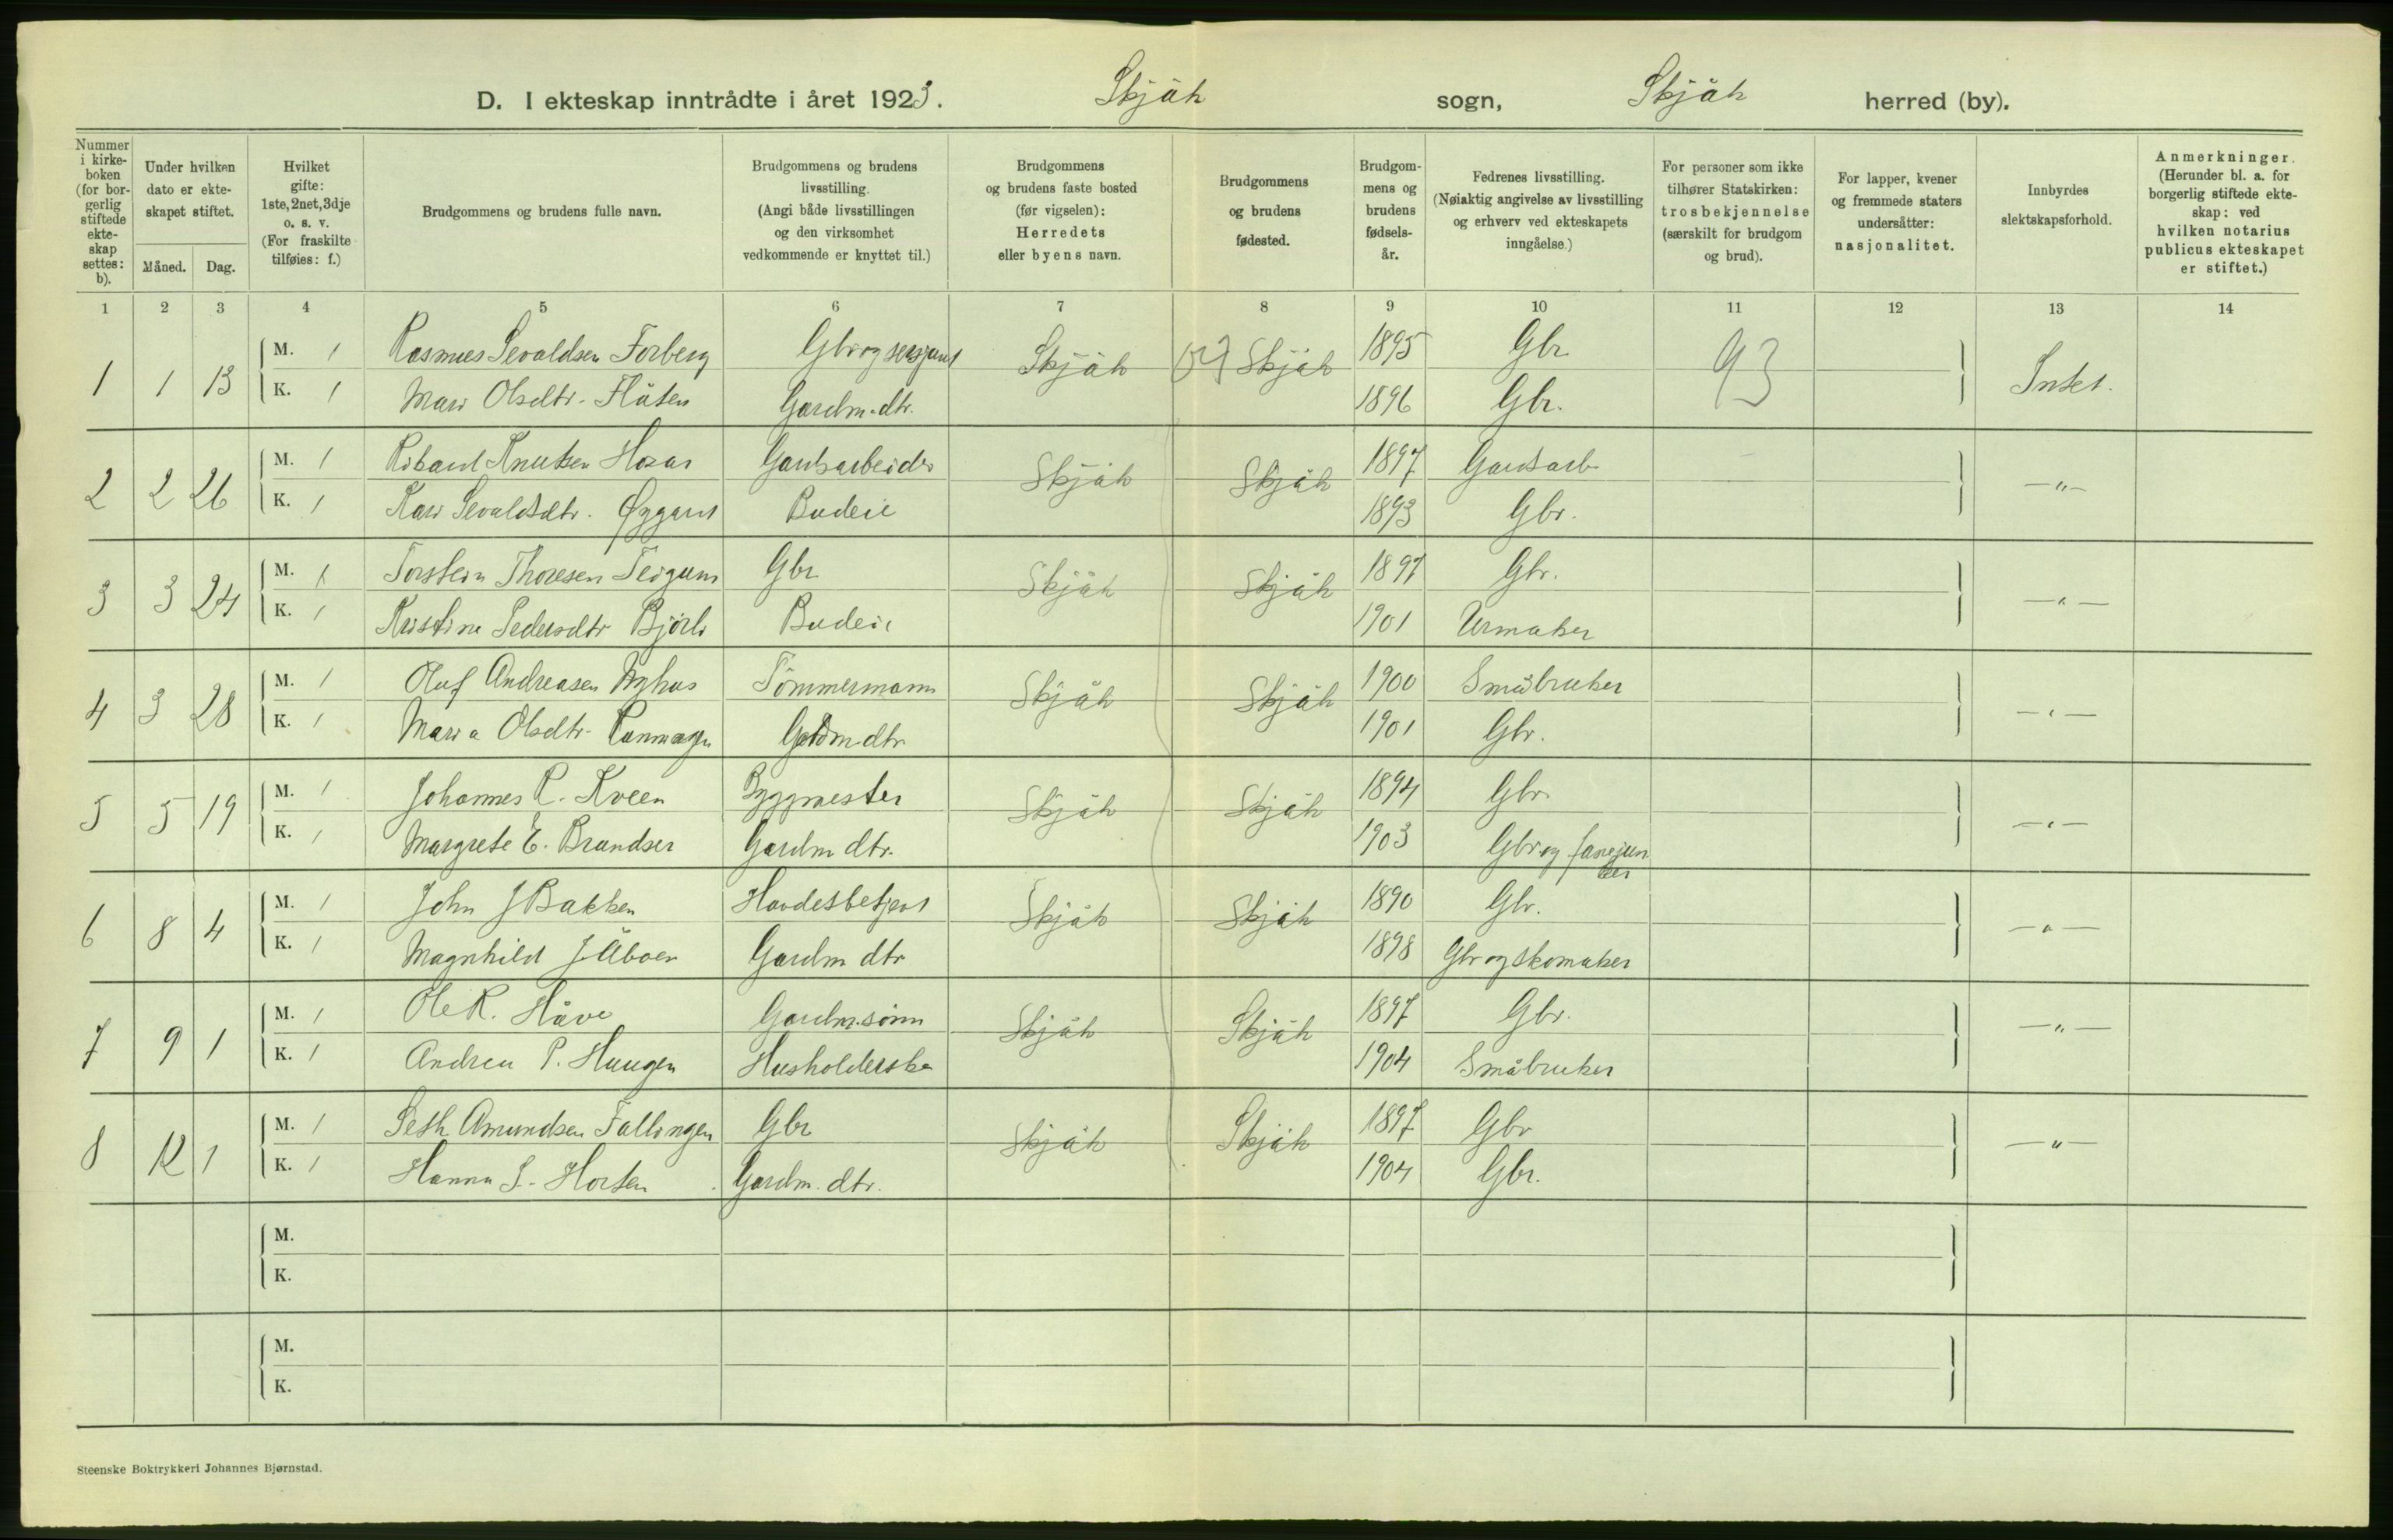 D. I ekteskap inntrådte i året 1923. Skjåk sogn, Skjåk herred (by).
Nummer i kirkeboken (for borgerlig stiftede ekteskap settes: b).
Under hvilken dato er ekteskapet stiftet.
Måned. Dag.
Hvilket gifte: 1ste, 2net, 3dje o. s. v. (For fraskilte tilføies: f.)
Brudgommens og brudens fulle navn.
Brudgommens og brudens livsstilling. (Angi både livsstillingen og den virksomhet vedkommende er knyttet til.)
Brudgommens og brudens faste bosted (før vigselen): Herredets eller byens navn.
Brudgommens og brudens fødested.
Brudgommens og brudens fødselsår.
Fedrenes livsstilling. (Nøiaktig angivelse av livsstilling og erhverv ved ekteskapets inngåelse.)
For personer som ikke tilhører Statskirken: trosbekjennelse (særskilt for brudgom og brud).
For lapper, kvener og fremmede staters undersåtter: nasjonalitet.
Innbyrdes slektskapsforhold.
Anmerkninger. (Herunder bl. a. for borgerlig stiftede ekteskap: ved hvilken notarius publicus ekteskapet er stiftet.)
1 2 3 4 5 6 7 8 9 10 11 12 13 14
1 1 13 M. 1 Rasmus Sevaldsen Forberg Gbr og sersjant Skjåk Skjåk 1895 Gbr 93 Intet.
K. 1 Mari Olsdtr. Flåten Gardm.dtr. 1896 Gbr.
2 2 26 M. 1 Knutsen Gardsarbeider Skjåk Skjåk 1897 Gardsarb. —"—
K. 1 Kari Sevaldsdtr. Øygard Budeie 1893 Gbr.
3 3 24 M. 1 Torstein Thoresen Teigum Gbr Skjåk Skjåk 1897 Gbr. —"—
K. 1 Kristine Pedersdtr Bjørli Budeie 1901 Urmaker
4 3 28 M. 1 Oluf Andreasen Nyhus Tömmermann Skjåk Skjåk 1900 Småbruker —"—
K. 1 Maria Olsdtr. Gardmdtr 1901 Gbr.
5 5 19 M. 1 Johannes R. Kveen Byggmester Skjåk Skjåk 1894 Gbr. —"—
K. 1 Margrete E. Brandser Gardm dtr. 1903 Gbr og fanejunker
6 8 4 M. 1 John J Bakken Skjåk Skjåk 1890 Gbr. —"—
K. 1 Magnhild J Åboen Gardm dtr 1898 Gbr og skomaker
7 9 1 M. 1 Ole R. Håve Gardm.sönn Skjåk Skjåk 1897 Gbr. —"—
K. 1 Andrea P. Haugen Husholderske 1904 Småbruker
8 12 1 M. 1 Seth Amundsen Fallingen Gbr Skjåk Skjåk 1897 Gbr —"—
K. 1 Hanna S. Horten Gardm. dtr. 1904 Gbr.
M.
K.
M.
K.
Steenske Boktrykkeri Johannes Bjørnstad.